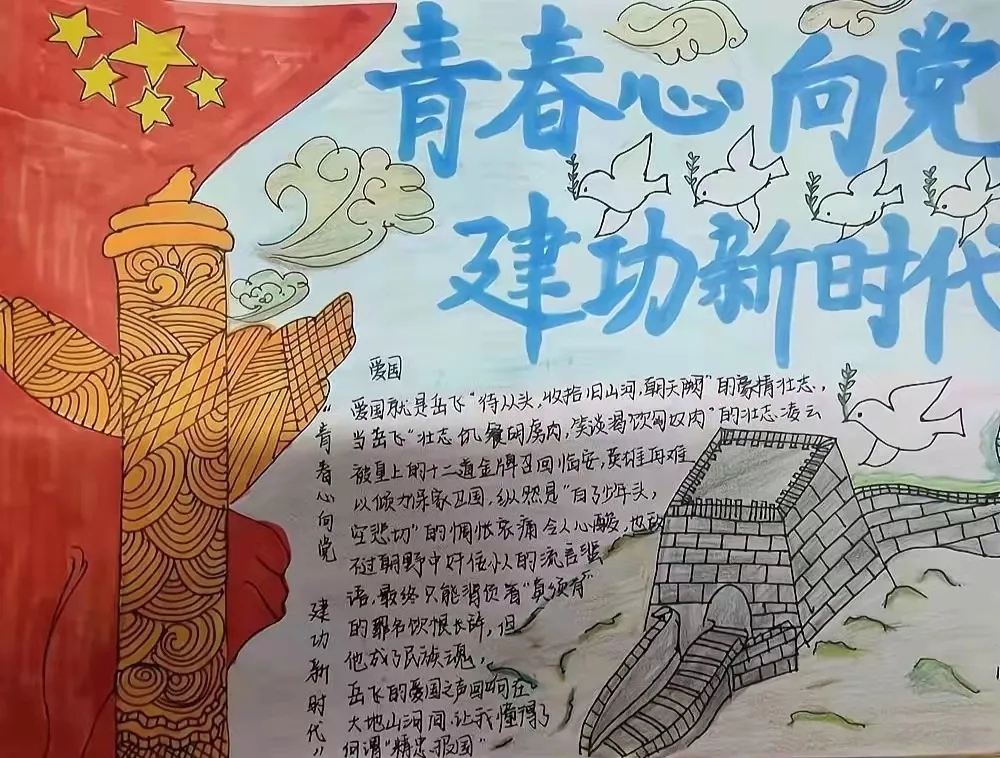 青春心向党
建功新时代
爱国
爱国就是岳飞“待从头，收拾旧山河，朝天阙”的豪情壮志，
当岳飞“壮志饥餐胡虏肉，笑谈渴饮匈奴肉”的壮志凌云
被皇上的十二道金牌召回临安，英雄再难
以倾力保家卫国，纵然是“白了少年头，
空悲切”的惆怅哀痛令人心酸，也敌
不过朝野中奸佞小人的流言蜚
语，最终只能背负着“莫须有”
的罪名饮恨长辞，但
他成了民族魂，
岳飞的爱国之声回响在
大地山河间，让我懂得了
何谓“精忠报国”
“青春心向党
建功新时代”